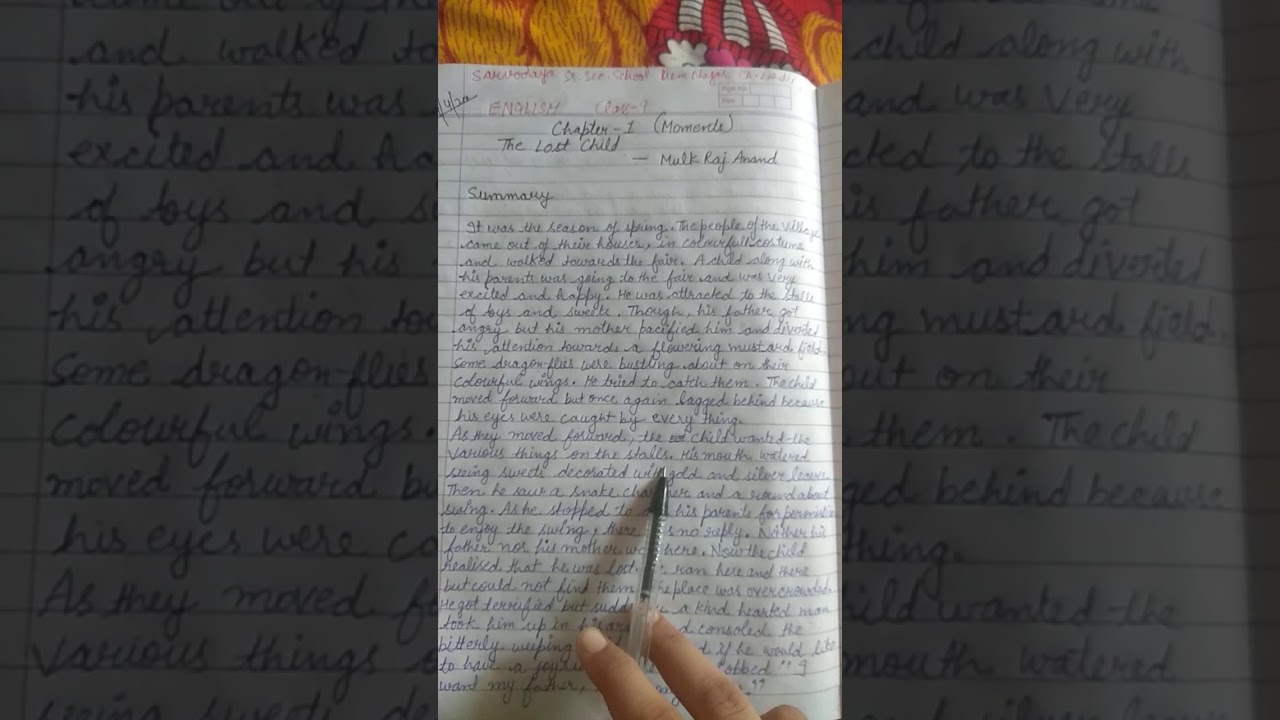 Sarvodaya Sr. Sec. School Prem Nagar
ENGLISH Class-9
Chapter-1 (Moments)
The Lost Child
— Mulk Raj Anand
Summary
It was the season of spring. The people of the village
came out of their houses, in colourfull costume
and walked towards the fair. A child along with
his parents was going to the fair and was very
excited and happy. He was attracted to the stalls
of toys and sweets. Though, his father got
angry but his mother pacified him and diverted
his attention towards a flowering mustard field.
Some dragon-flies were bustling about on their
colourful wings. He tried to catch them. The child
moved forward but once again lagged behind because
his eyes were caught by every thing.
As they moved forward, the child wanted the
various things on the stalls. His mouth watered
seeing sweets decorated with gold and silver leaves.
Then he saw a snake and a roundabout
swing. As he stopped to his parents for permission
to enjoy the swing, there no reply. Neither his
father nor his mother here. Now the child
realised that he was lost. ran here and there
but could not find them place was overcrowded.
He got terrified but a kind hearted man
took him up in his consoled the
bitterly weeping if he would like
to have a sobbed "I
want my father, "